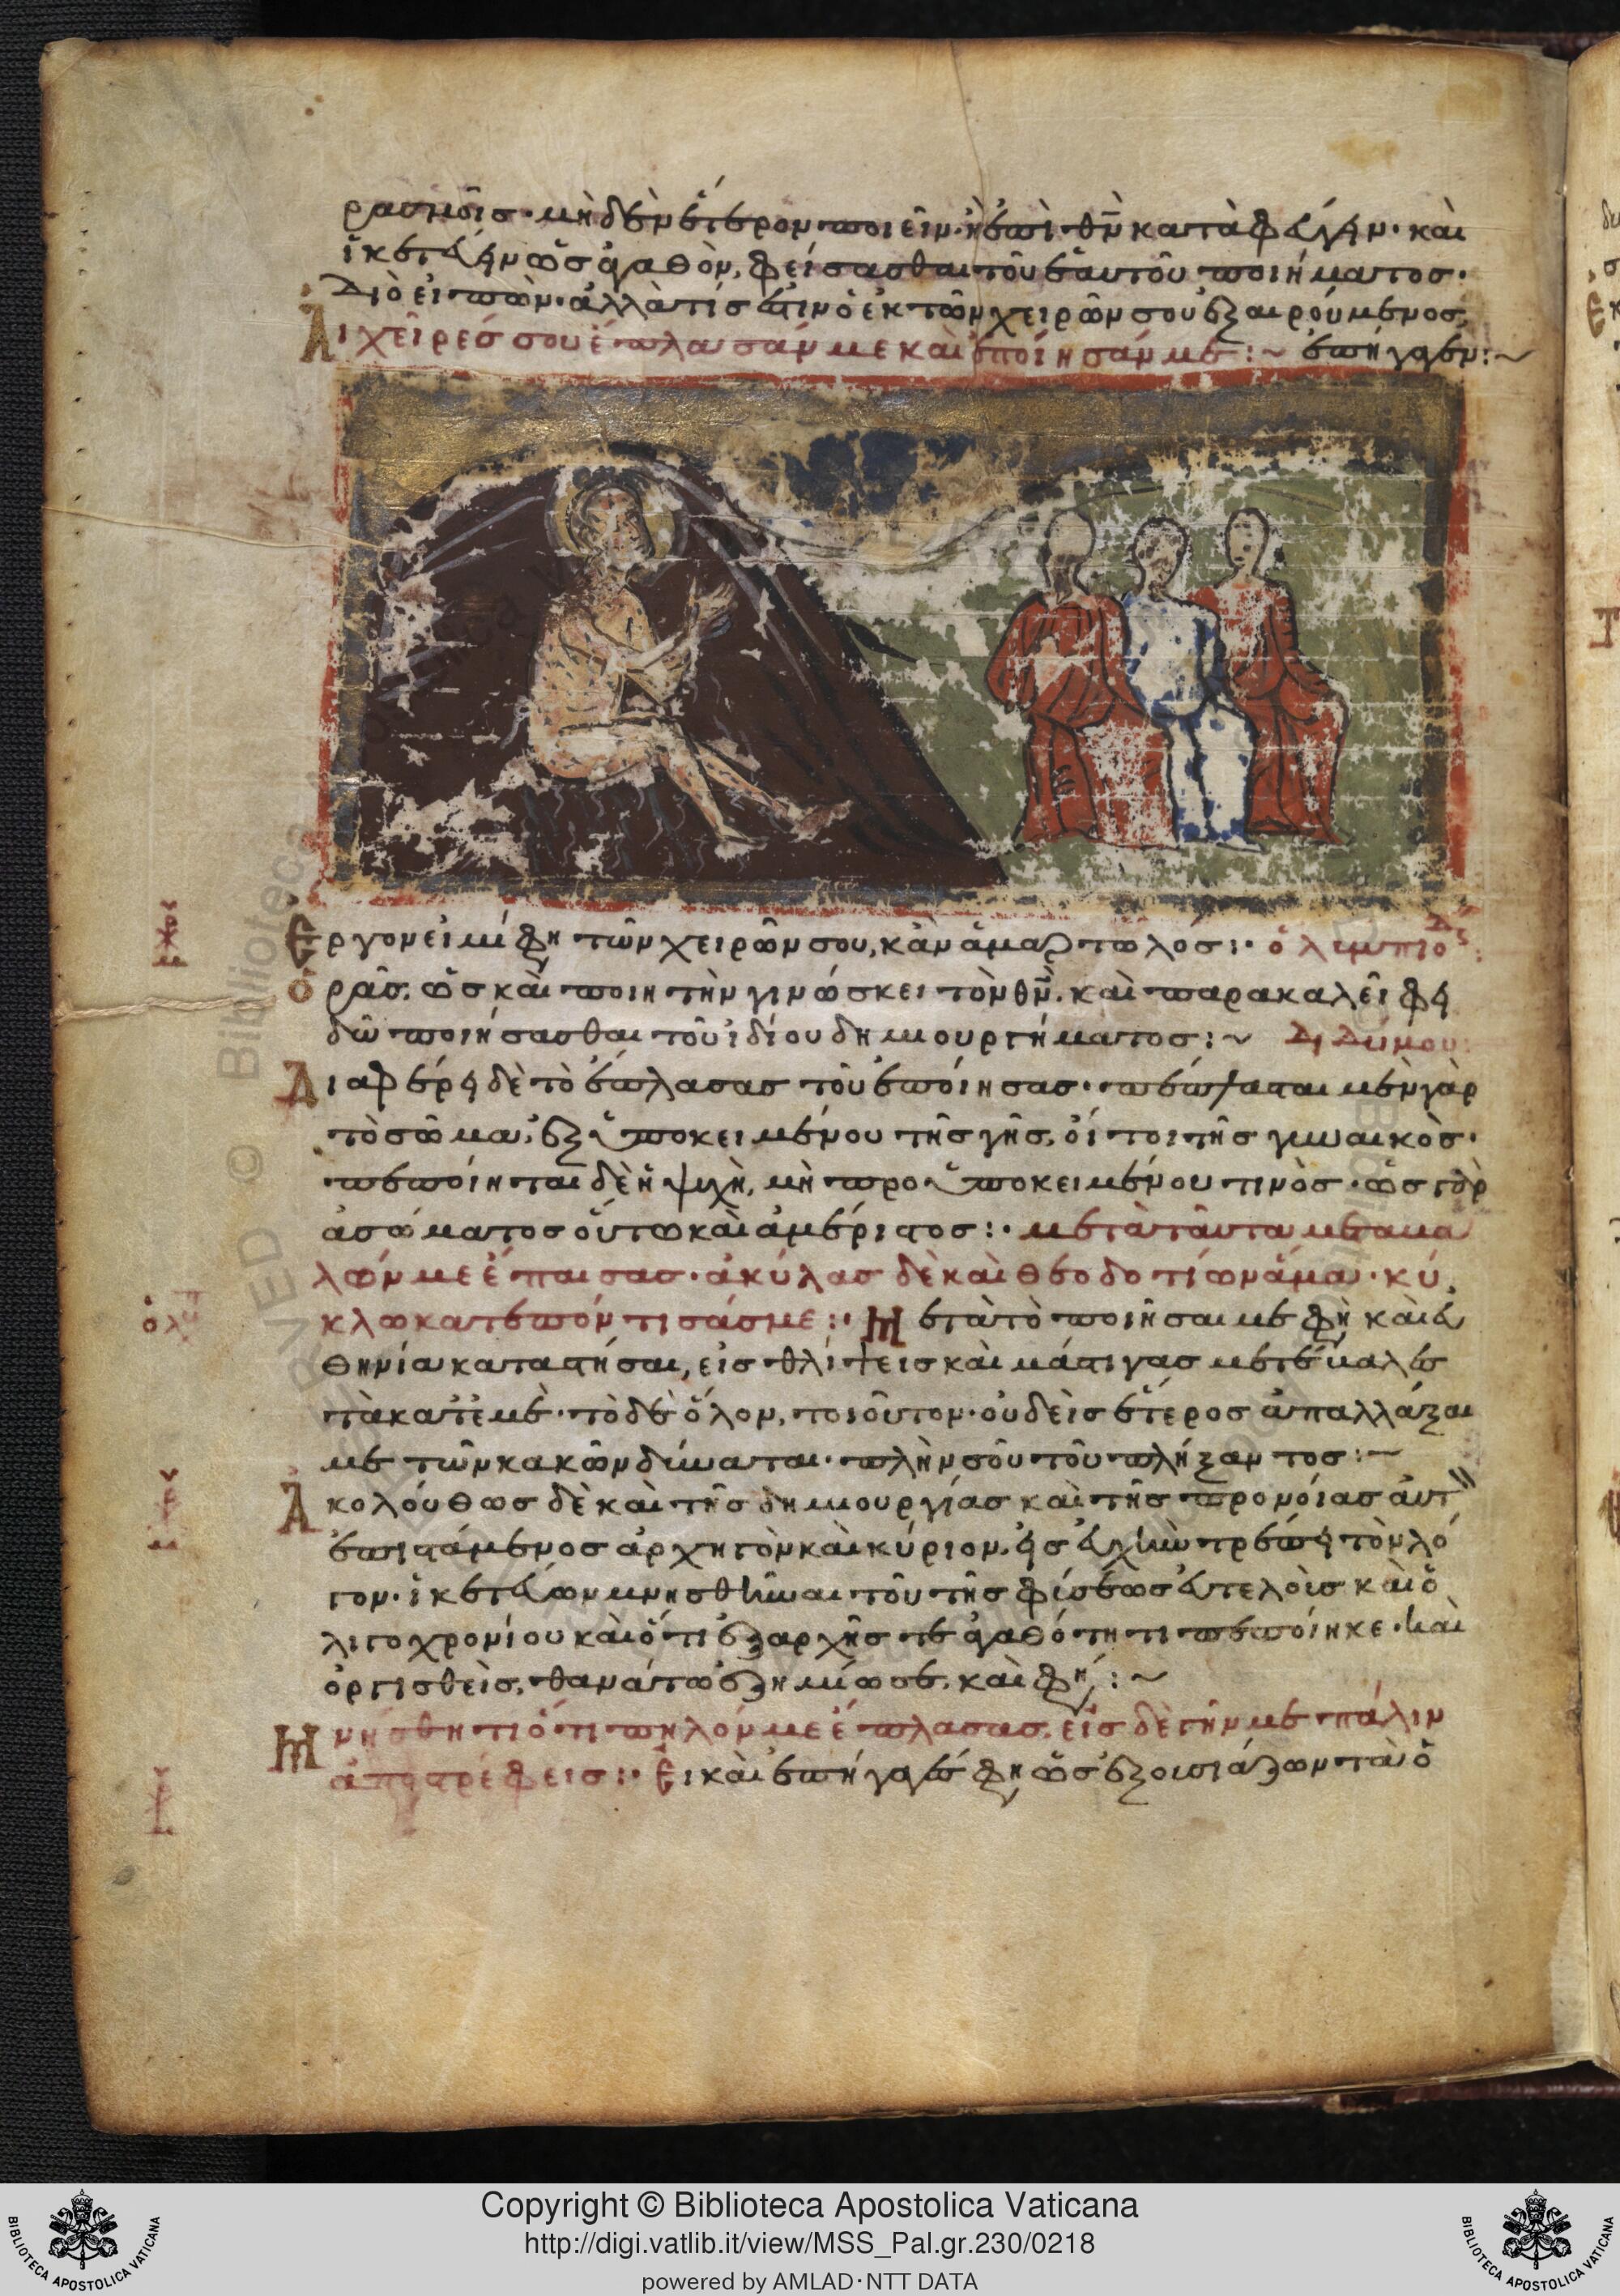 ρασμοῖς· μηδὲν ἕτερον ποιεῖν· ἢ ἐπὶ θν̅ καταφεύγειν· καὶ
ἱκετεύειν ὡς ἀγαθὸν, φείσασθαι τοῦ ἑαυτοῦ ποιήματος·
Διὸ εἰπὼν· ἀλλὰ τίς ἐστιν ὁ ἐκ τῶν χειρῶν σου ἐξαιρούμενος,
Αἱ χεῖρές σου ἔπλασάν με καὶ ἐποίησάν με :~ ἐπήγαγεν :~
Ἔργον εἰμί φη τῶν χειρῶν σου, κἂν ἁμαρτωλός :· ὀλυμπιοδ
ὁρᾷς, ὡς καὶ ποιητὴν γινώσκει τὸν θν̅, καὶ παρακαλεῖ φει
δὼ ποιήσασθαι τοῦ ἰδίου δημιουργήματος :~ Διδύμου:
Διαφέρει δὲ τὸ ἔπλασας τοῦ ἐποίησας· πέπλασται μὲν γὰρ
τὸ σῶμα, ἐξ ὑποκειμένου τῆς γῆς, ἤτοι τῆς γυναικὸς·
πεποίηται δὲ ἡ ψυχὴ, μὴ προϋποκειμένου τινὸς· ὡς γὰρ
ἀσώματος οὕτω καὶ ἀμέριστος :· μετὰ ταῦτα μεταβα
λών με ἔπαισας· ἀκύλας δὲ καὶ θεοδοτίων ἅμα· κύ
κλω κατεπόντισάς με :· Μετὰ τὸ ποιῆσαι με φὴ καὶ εὐ
θηνία καταστῆσαι, εἰς θλίψεις καὶ μάστιγας μετέβαλες
τὰ κατ' ἐμὲ· τὸ δὲ ὅλον, τοιοῦτον· οὐδεὶς ἕτερος ἀπαλλάξαι
με τῶν κακῶν δύναται· πλὴν σοῦ τοῦ πλήξαντος :~
Ἀκολούθως δὲ καὶ τῆς δημιουργίας καὶ τῆς προνοίας αὐτ
ἐπιστάμενος ἀρχηγὸν καὶ κύριον, εἰς εὐχὴν τρέπει τὸν λό
γον· ἱκετεύων μνησθῆναι τοῦ τῆς φύσεως εὐτελοῦς καὶ ὀ
λιγοχρονίου καὶ ὅτι ἐξ ἀρχῆς τε ἀγαθότητι πεποίηκε· καὶ
ὀργισθεὶς, θανάτω ἐζημίωσε, καὶ φη :~
Μνήσθητι ὅτι πηλόν με ἔπλασας, εἰς δὲ γῆν με πάλιν
ἀποστρέφεις :· Εἰ καὶ ἐπήγαγέ φη ὡς ἐξουσιάζων τὰ ὀ
Copyright © Biblioteca Apostolica Vaticana
http://digi.vatlib.it/view/MSS_Pal.gr.230/0218
powered by AMLAD·NTT DATA
BIBLIOTECA APOSTOLICA VATICANA
BIBLIOTECA APOSTOLICA VATICANA